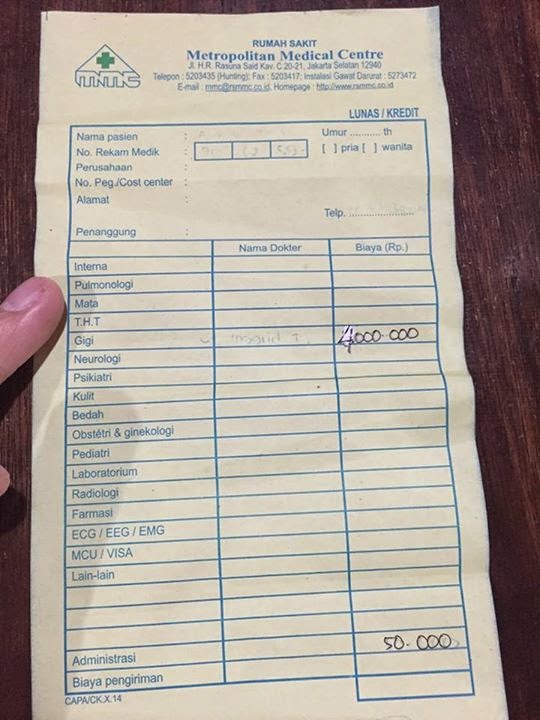 mmc
RUMAH SAKIT
Metropolitan Medical Centre
Jl. H.R. Rasuna Said Kav. C 20-21, Jakarta Selatan 12940
Telepon : 5203435 (Hunting); Fax : 5203417; Instalasi Gawat Darurat : 5273472
E-mail : mmc@rsmmc.co.id, Homepage : http://www.rsmmc.co.id
LUNAS / KREDIT
Nama pasien : Umur ........... th
No. Rekam Medik : [ ] pria [ ] wanita
Perusahaan :
No. Peg./Cost center :
Alamat :
Telp. ......................
Penanggung :
Nama Dokter Biaya (Rp.)
Interna
Pulmonologi
Mata
T.H.T
Gigi 4000.000
Neurologi
Psikiatri
Kulit
Bedah
Obstétri & ginekologi
Pediatri
Laboratorium
Radiologi
Farmasi
ECG / EEG / EMG
MCU / VISA
Lain-lain
Administrasi 50.000
Biaya pengiriman
CAPA/CK.X.14